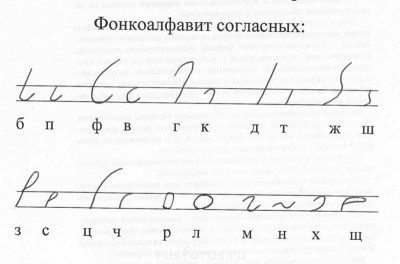 Фонкоалфавит согласных:
б п ф в г к д т ж ш
з с ц ч р л м н х щ
rusforus.ru